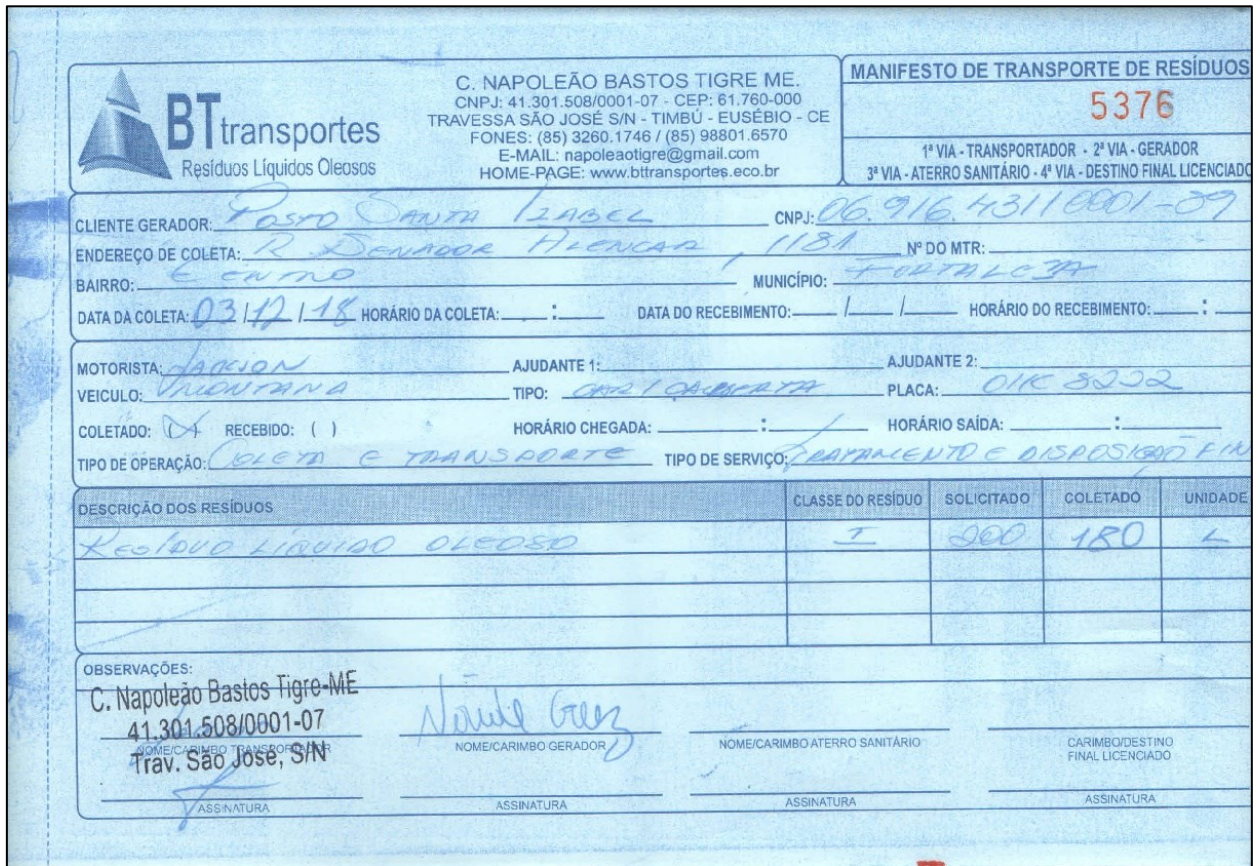 BTtransportes
Resíduos Líquidos Oleosos
C. NAPOLEÃO BASTOS TIGRE ME.
CNPJ: 41.301.508/0001-07 - CEP: 61.760-000
TRAVESSA SÃO JOSÉ S/N - TIMBÚ - EUSÉBIO - CE
FONES: (85) 3260.1746 / (85) 98801.6570
E-MAIL: napoleaotigre@gmail.com
HOME-PAGE: www.bttransportes.eco.br
MANIFESTO DE TRANSPORTE DE RESÍDUOS
5376
1ª VIA - TRANSPORTADOR - 2ª VIA - GERADOR
3ª VIA - ATERRO SANITÁRIO - 4ª VIA - DESTINO FINAL LICENCIADO
CLIENTE GERADOR: POSTO SANTA IZABEL CNPJ: 06.916.431/0001-09
ENDEREÇO DE COLETA: R SENADOR ALENCAR, 1181 Nº DO MTR:
BAIRRO: CENTRO MUNICÍPIO: FORTALEZA
DATA DA COLETA: 03/12/18 HORÁRIO DA COLETA: : DATA DO RECEBIMENTO: / / HORÁRIO DO RECEBIMENTO: :
MOTORISTA: AJUDANTE 1: AJUDANTE 2:
VEICULO: MONTANA TIPO: PLACA: OIK 8222
COLETADO: (X) RECEBIDO: ( ) HORÁRIO CHEGADA: : HORÁRIO SAÍDA: :
TIPO DE OPERAÇÃO: COLETA E TRANSPORTE TIPO DE SERVIÇO: TRATAMENTO E DISPOSIÇÃO FIN
DESCRIÇÃO DOS RESÍDUOS CLASSE DO RESÍDUO SOLICITADO COLETADO UNIDADE
RESÍDUO LÍQUIDO OLEOSO I 200 180 L
OBSERVAÇÕES:
C. Napoleão Bastos Tigre-ME
41.301.508/0001-07
NOME/CARIMBO TRANSPORTADOR NOME/CARIMBO GERADOR NOME/CARIMBO ATERRO SANITÁRIO CARIMBO/DESTINO FINAL LICENCIADO
Trav. São José, S/N
ASSINATURA ASSINATURA ASSINATURA ASSINATURA